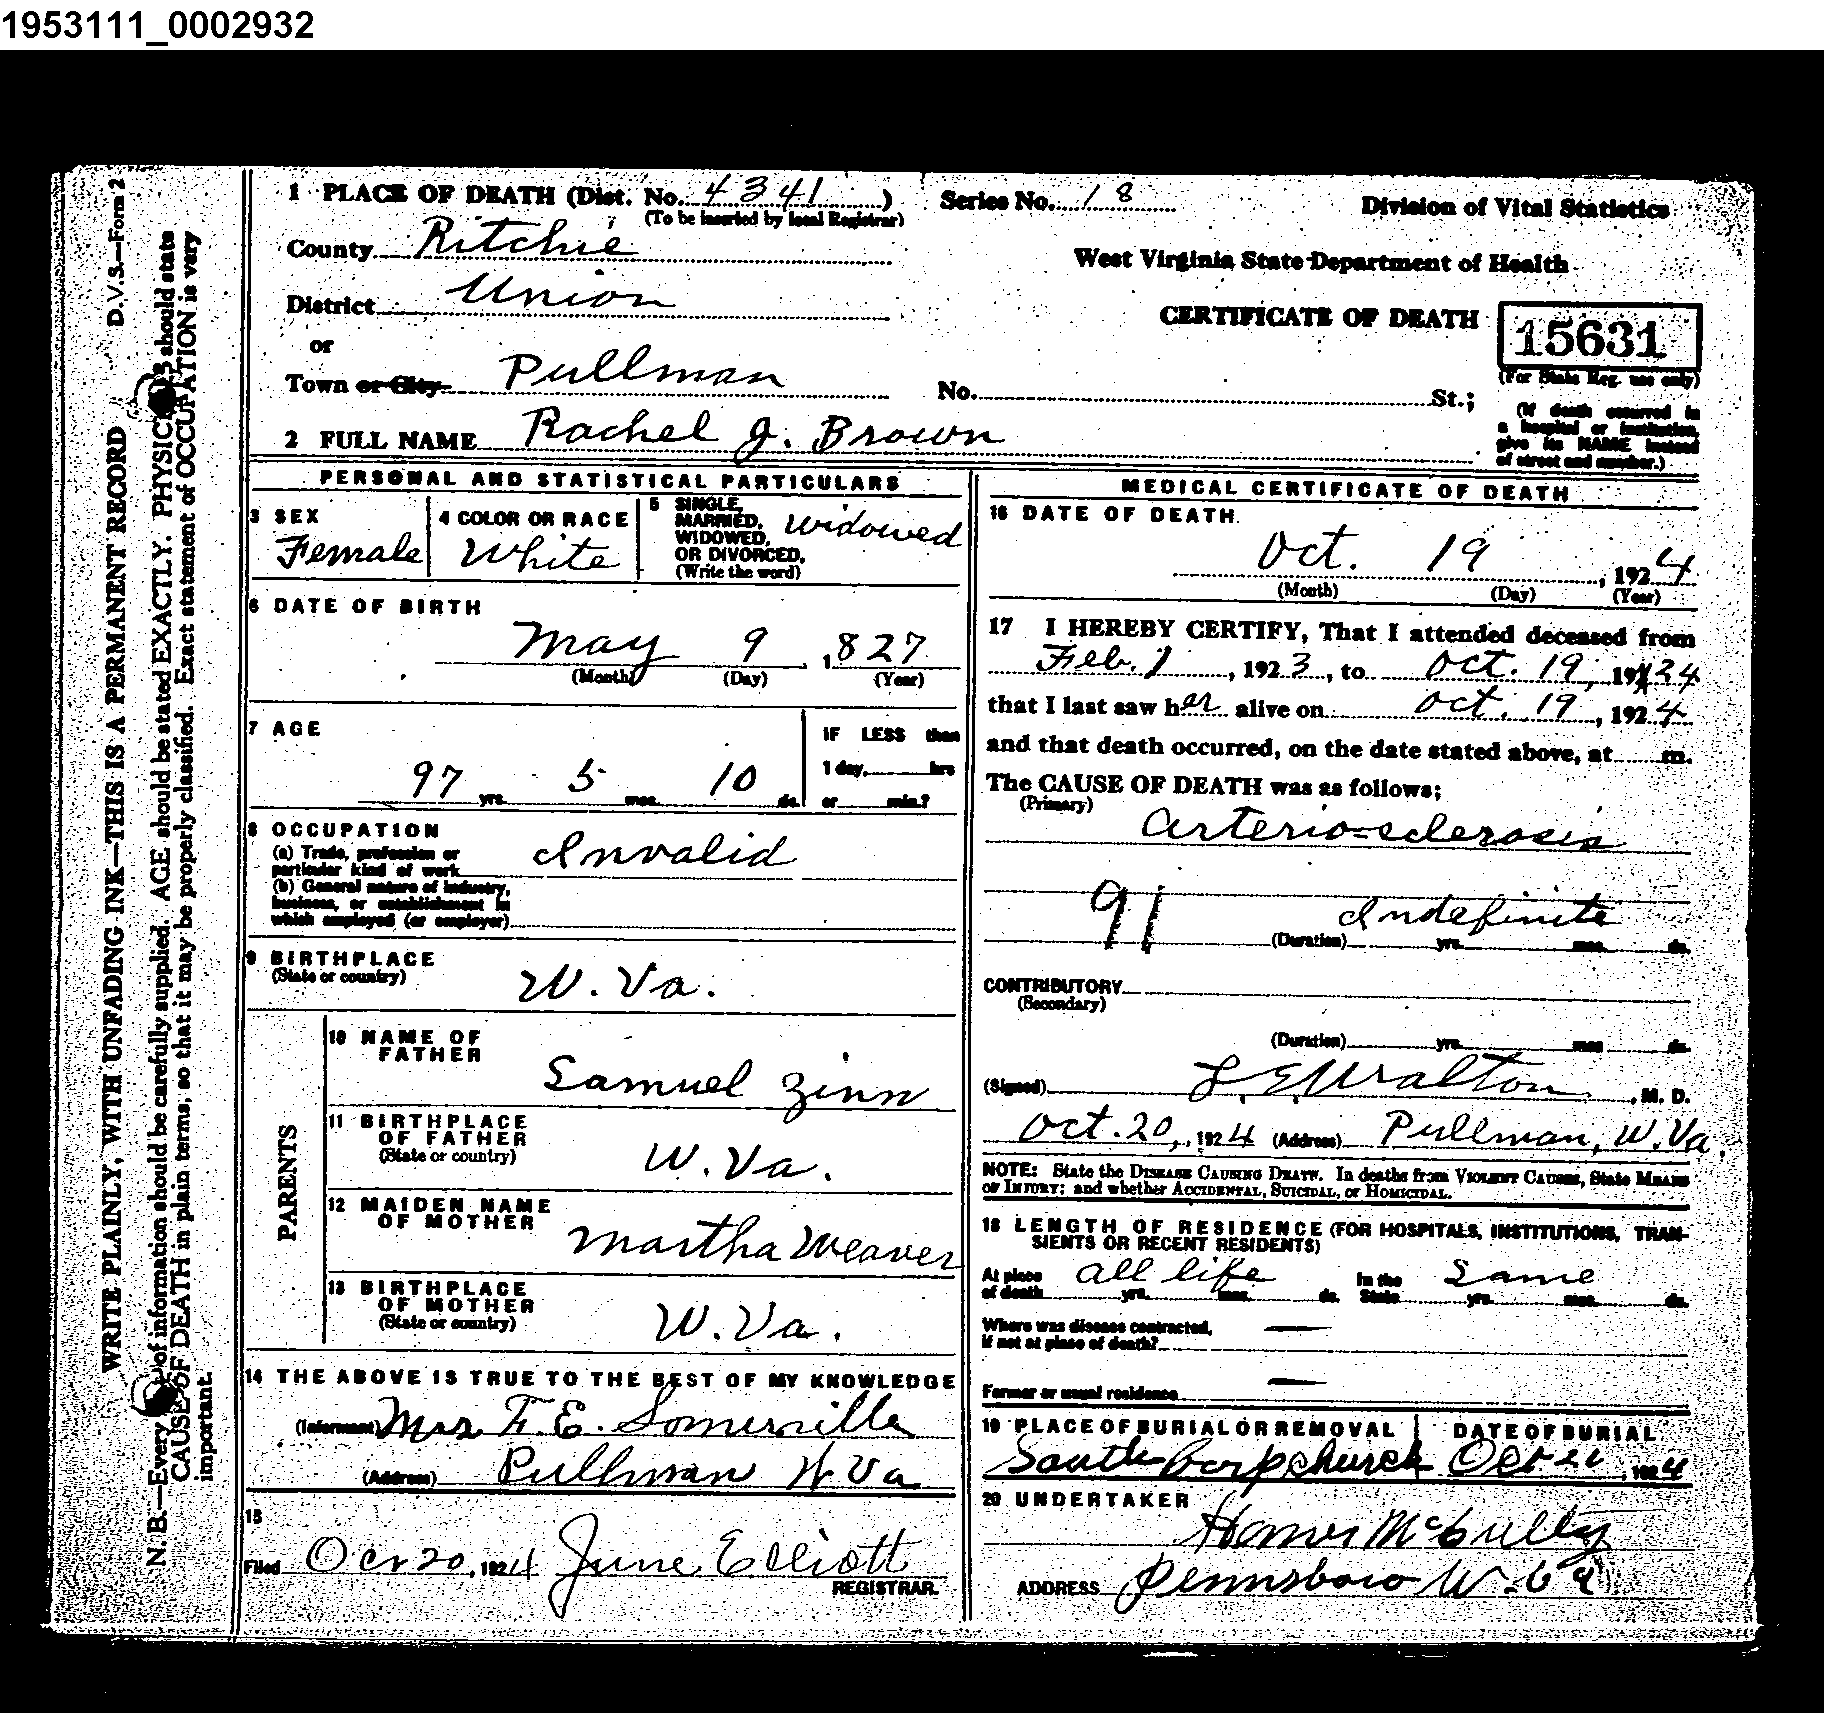 1953111_0002932
1 PLACE OF DEATH (Dist. No. 4341 ) Series No. 18 Division of Vital Statistics
(To be inserted by local Registrar)
County Ritchie
West Virginia State Department of Health
District Union
CERTIFICATE OF DEATH 15631
or
Town or City Pullman No. St.; (For State Reg. use only)
(If death occurred in
a hospital or institution,
give its NAME instead
of street and number.)
2 FULL NAME Rachel J. Brown
PERSONAL AND STATISTICAL PARTICULARS
3 SEX
Female
4 COLOR OR RACE
White
5 SINGLE,
MARRIED,
WIDOWED,
OR DIVORCED,
(Write the word)
Widowed
6 DATE OF BIRTH
May 9 , 827
(Month) (Day) (Year)
7 AGE
97 yrs. 5 mos. 10 ds.
IF LESS than
1 day, hrs
or min.?
8 OCCUPATION
(a) Trade, profession or
particular kind of work
Invalid
(b) General nature of industry,
business, or establishment in
which employed (or employer)
9 BIRTHPLACE
(State or country)
W. Va.
PARENTS
10 NAME OF
FATHER
Samuel Zinn
11 BIRTHPLACE
OF FATHER
(State or country)
W. Va.
12 MAIDEN NAME
OF MOTHER
Martha Weaver
13 BIRTHPLACE
OF MOTHER
(State or country)
W. Va.
14 THE ABOVE IS TRUE TO THE BEST OF MY KNOWLEDGE
(Informant) Mrs F. E. Somerville
(Address) Pullman W Va
15
Filed Oct 20, 1924 June Elliott
REGISTRAR.
MEDICAL CERTIFICATE OF DEATH
16 DATE OF DEATH
Oct. 19 , 1924
(Month) (Day) (Year)
17 I HEREBY CERTIFY, That I attended deceased from
Feb. 1 , 1923, to Oct. 19, 1924
that I last saw her alive on Oct. 19, 1924
and that death occurred, on the date stated above, at m.
The CAUSE OF DEATH was as follows;
(Primary)
Arterio=sclerosis
91 Indefinite
(Duration) yrs. mos. ds.
CONTRIBUTORY
(Secondary)
(Duration) yrs. mos. ds.
(Signed) L. E. Walton , M. D.
Oct. 20, , 1924 (Address) Pullman, W. Va.
NOTE: State the DISEASE CAUSING DEATH. In deaths from VIOLENT CAUSES, State MEANS
OF INJURY; and whether ACCIDENTAL, SUICIDAL, or HOMICIDAL.
18 LENGTH OF RESIDENCE (FOR HOSPITALS, INSTITUTIONS, TRAN-
SIENTS OR RECENT RESIDENTS)
At place
of death all life yrs. mos. ds. In the
State Same yrs. mos. ds.
Where was disease contracted, —
if not at place of death?
Former or usual residence —
19 PLACE OF BURIAL OR REMOVAL DATE OF BURIAL
South church Oct , 1924
20 UNDERTAKER
Homer McCullty
ADDRESS Pennsboro W. Va
D.V.S.—Form 2
WRITE PLAINLY, WITH UNFADING INK—THIS IS A PERMANENT RECORD
N. B.—Every of information should be carefully supplied. AGE should be stated EXACTLY. PHYSIC should state
CAUSE OF DEATH in plain terms, so that it may be properly classified. Exact statement of OCCUPATION is very
important.